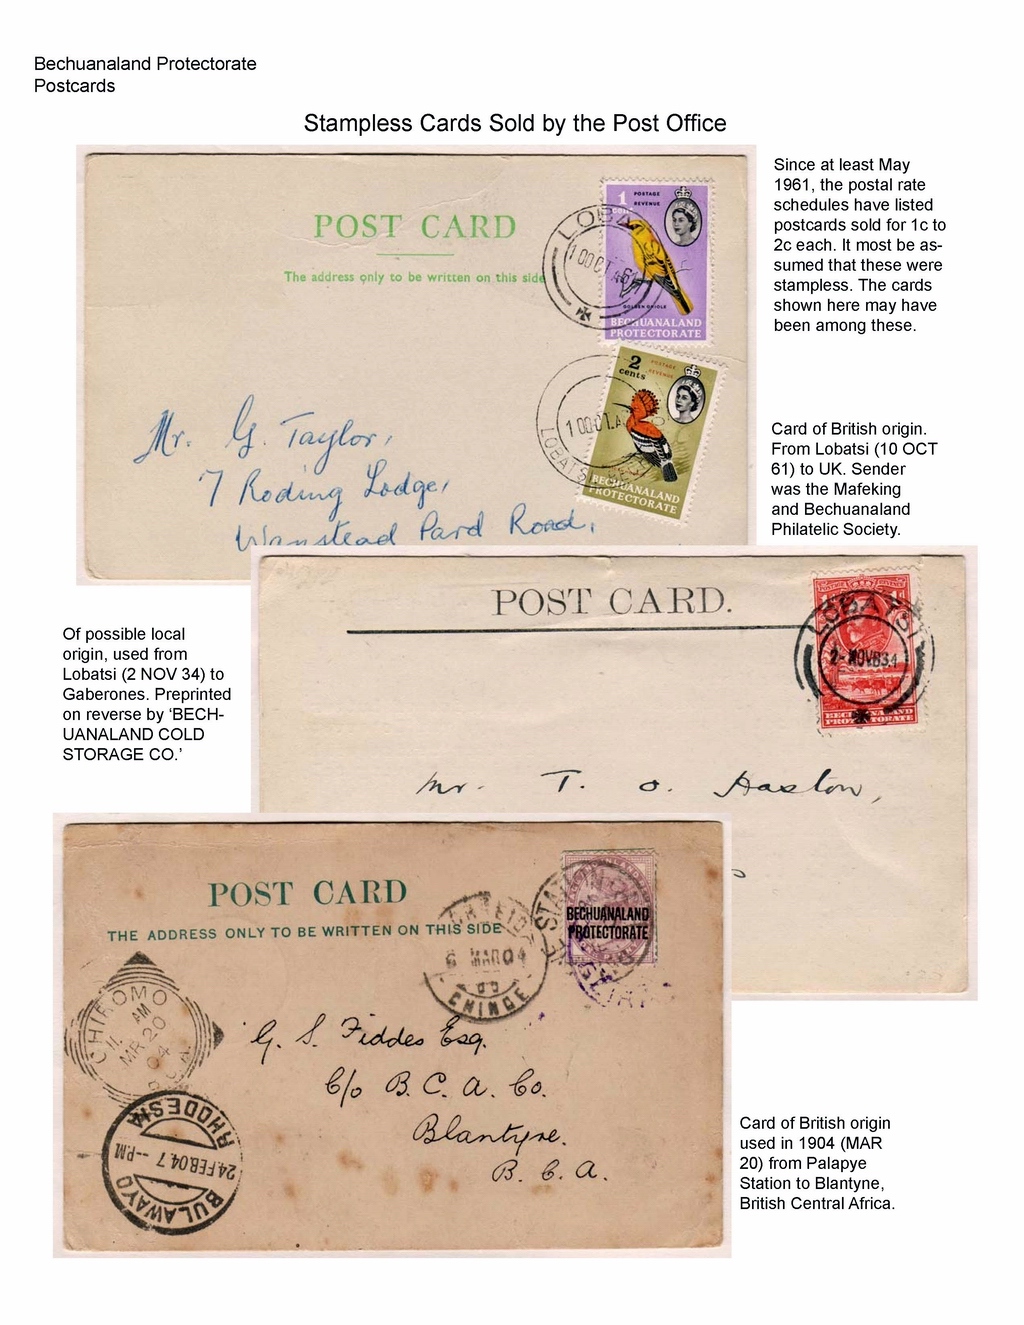 Bechuanaland Protectorate
Postcards
Stampless Cards Sold by the Post Office
Since at least May
1961, the postal rate
schedules have listed
postcards sold for 1c to
2c each. It most be as-
sumed that these were
stampless. The cards
shown here may have
been among these.
POST CARD
The address only to be written on this side
1
cent
POSTAGE
REVENUE
GOLDEN ORIOLE
BECHUANALAND
PROTECTORATE
LOBA
10 OCT 61
2
cents
POSTAGE
REVENUE
BECHUANALAND
PROTECTORATE
LOBATSI
10 OCT
Mr. G. Taylor,
7 Roding Lodge,
Wanstead Pard Road,
Card of British origin.
From Lobatsi (10 OCT
61) to UK. Sender
was the Mafeking
and Bechuanaland
Philatelic Society.
POST CARD.
LOBATSI
2-NOV 34
BECHUANALAND
PROTECTORATE
Mr. T. O. Haston,
Of possible local
origin, used from
Lobatsi (2 NOV 34) to
Gaberones. Preprinted
on reverse by ‘BECH-
UANALAND COLD
STORAGE CO.’
POST CARD
THE ADDRESS ONLY TO BE WRITTEN ON THIS SIDE
BECHUANALAND
PROTECTORATE
STATION
6 MAR 04
CHINDE
CHIROMO
11 AM
MR 20
04
RHODESIA
24 FEB 04 7--PM
BULAWAYO
G. S. Fiddes Esq.
C/o B. C. A. Co.
Blantyre.
B. C. A.
Card of British origin
used in 1904 (MAR
20) from Palapye
Station to Blantyne,
British Central Africa.